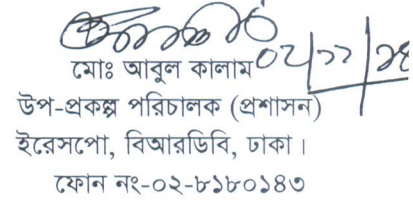 মোঃ আবুল কালাম
উপ-প্রকল্প পরিচালক (প্রশাসন)
ইরেসপো, বিআরডিবি, ঢাকা।
ফোন নং-০২-৮১৮০১৪৩